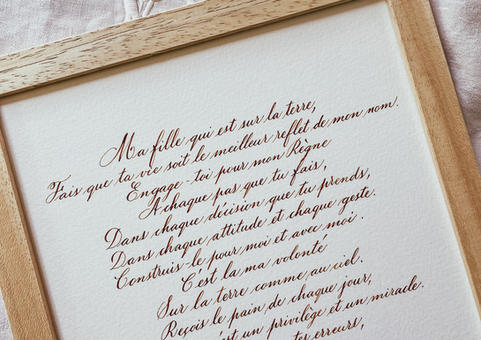 Ma fille qui est sur la terre,
Fais que ta vie soit le meilleur reflet de mon nom.
Engage-toi pour mon Règne
A chaque pas que tu fais,
Dans chaque décision que tu prends,
Dans chaque attitude et chaque geste.
Construis-le pour moi et avec moi.
C'est là ma volonté
Sur la terre comme au ciel.
Reçois le pain de chaque jour,
est un privilège et un miracle.
tes erreurs,